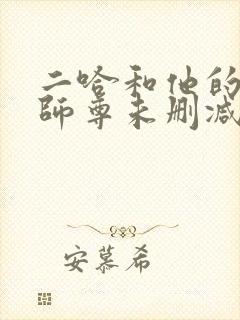 二哈和他的
师尊未删减
安慕希